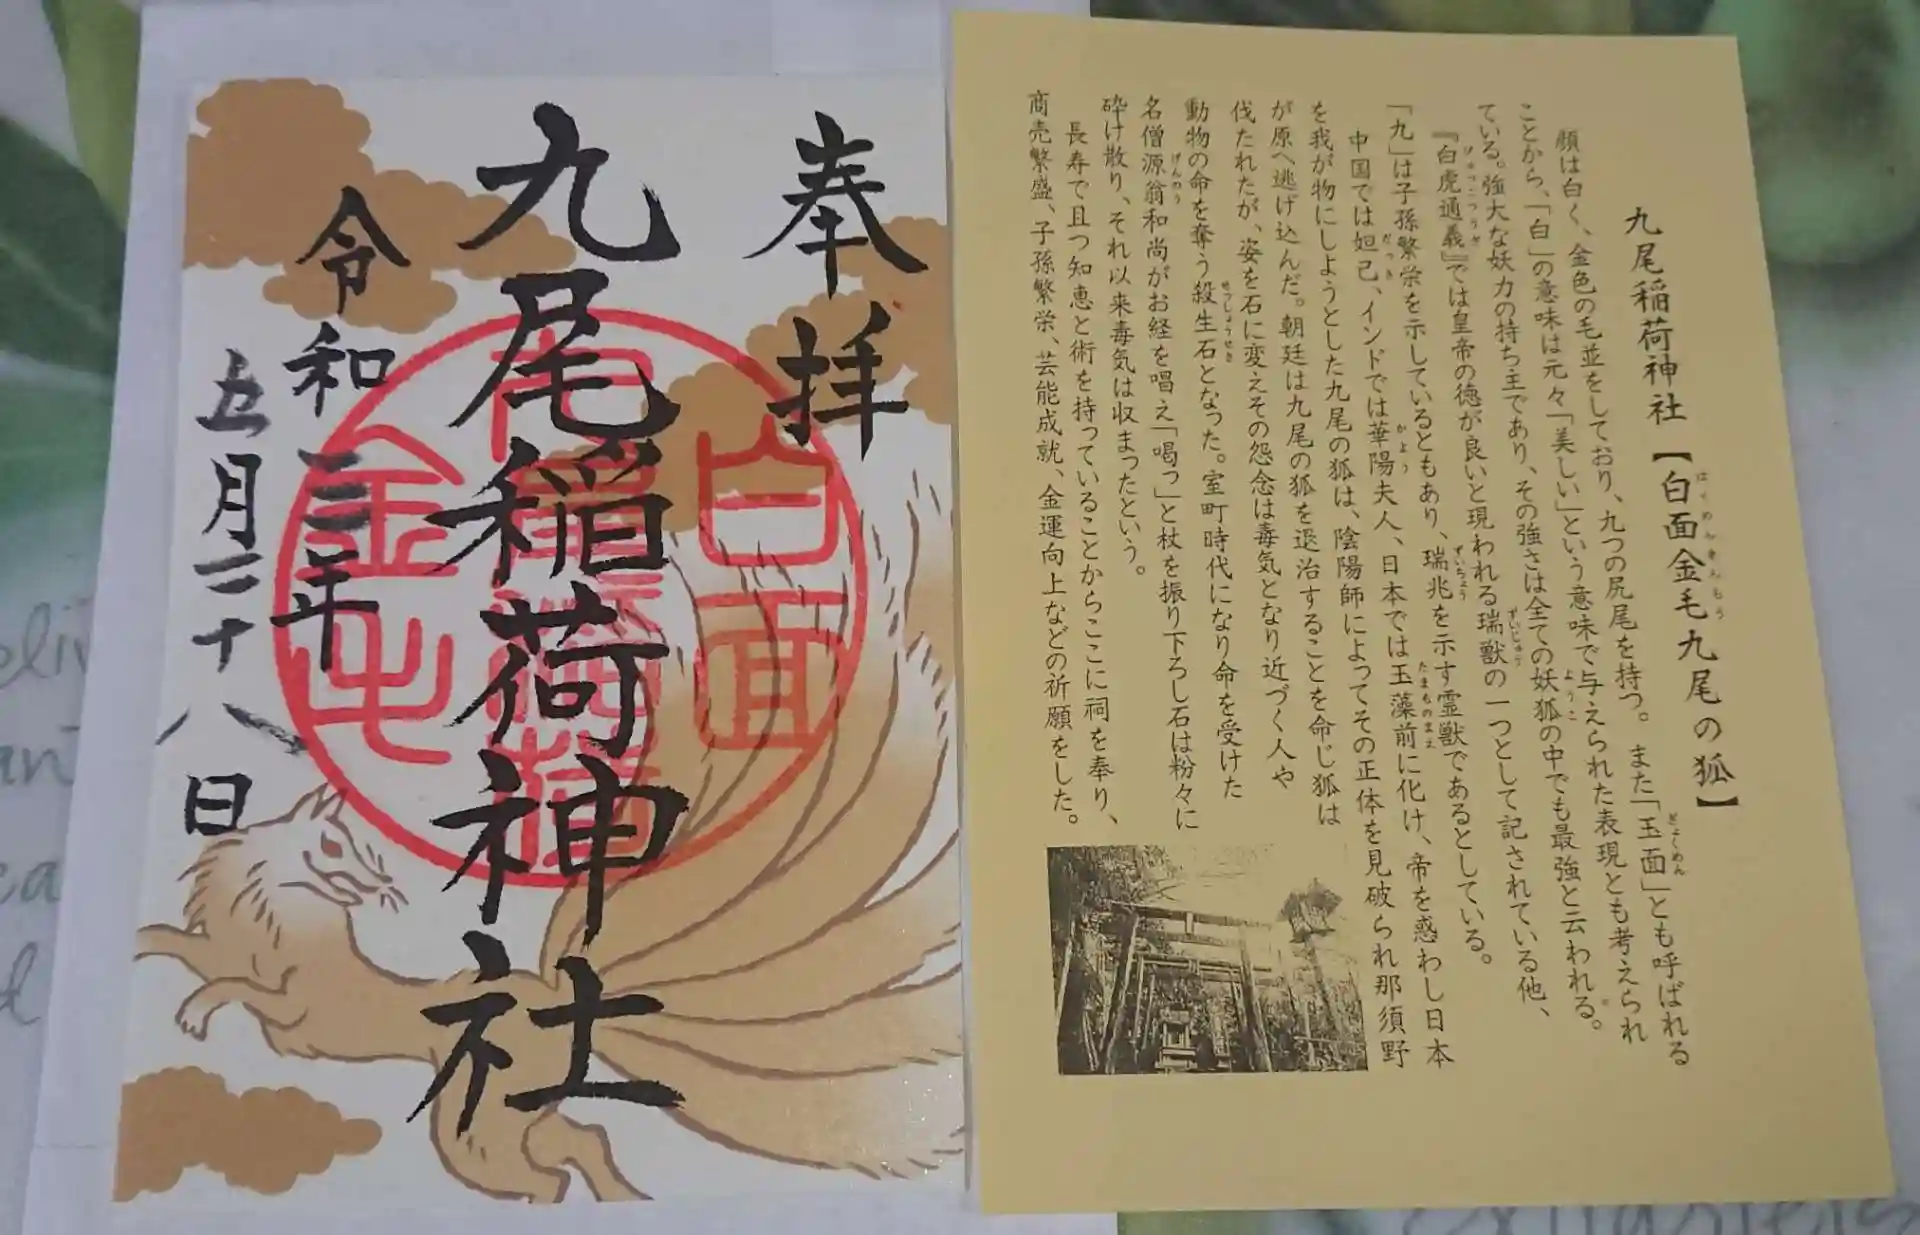 奉拝
九尾稲荷神社
令和三年
五月二十八日
白面
金毛
九尾稲荷神社【白面金毛九尾の狐】
はくめんきんもう
顔は白く、金色の毛並をしており、九つの尻尾を持つ。また「玉面」とも呼ばれる
ぎょくめん
ことから、「白」の意味は元々「美しい」という意味で与えられた表現とも考えられ
ている。強大な妖力の持ち主であり、その強さは全ての妖狐の中でも最強と云われる。
ようこ
『白虎通義』では皇帝の徳が良いと現われる瑞獣の一つとして記されている他、
びゃっこつうぎ
ずいじゅう
「九」は子孫繁栄を示しているともあり、瑞兆を示す霊獣であるとしている。
ずいちょう
中国では妲己、インドでは華陽夫人、日本では玉藻前に化け、帝を惑わし日本
だっき
かよう
たまものまえ
を我が物にしようとした九尾の狐は、陰陽師によってその正体を見破られ那須野
が原へ逃げ込んだ。朝廷は九尾の狐を退治することを命じ狐は
伐たれたが、姿を石に変えその怨念は毒気となり近づく人や
動物の命を奪う殺生石となった。室町時代になり命を受けた
せっしょうせき
名僧源翁和尚がお経を唱え「喝っ」と杖を振り下ろし石は粉々に
げんのう
砕け散り、それ以来毒気は収まったという。
長寿で且つ知恵と術を持っていることからここに祠を奉り、
商売繁盛、子孫繁栄、芸能成就、金運向上などの祈願をした。